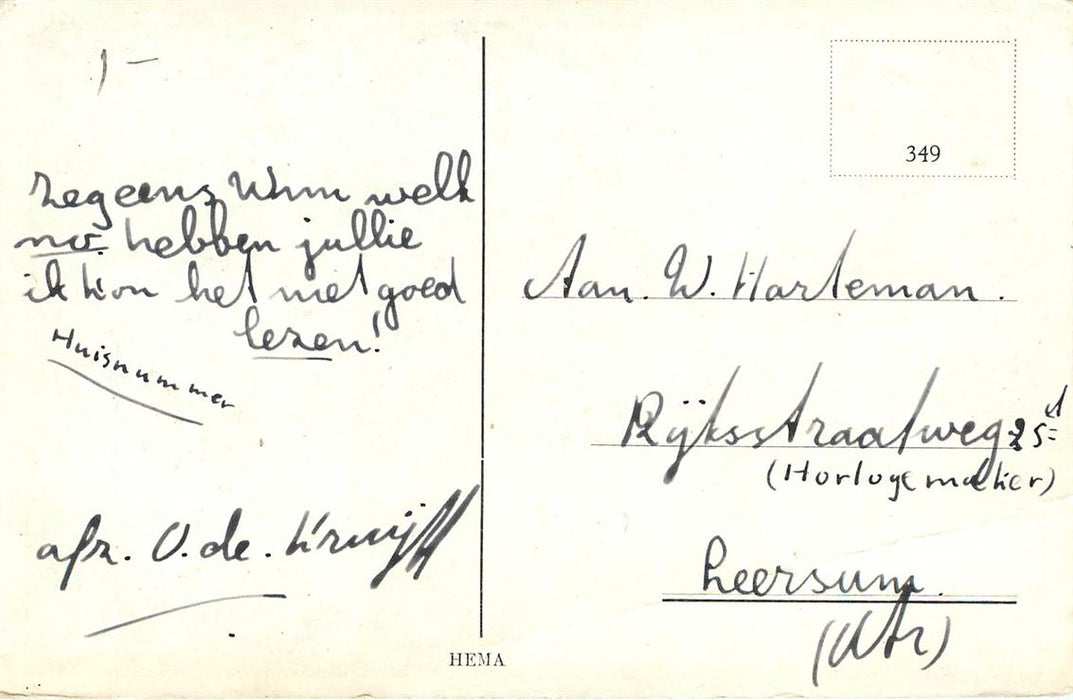 1 –
349
Zeg eens Wim welk
no. hebben jullie
ik kon het niet goed
lezen!
Huisnummer
afz. O. de. Kruijff
Aan. W. Harteman.
Rijksstraatweg
(Horlogemaker)
Leersum.
(Utr)
HEMA